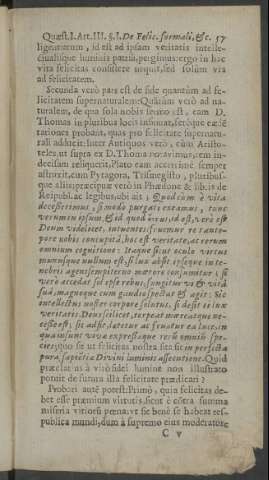 Quæst. I. Art. III. §. I. De Felic. formali, &c. 57
ligentiarum, id est ad ipsam veritatis intelle-
ctualisque luminis patriā, pergimus: ergo in hac
vita felicitas consistere nequit, sed solùm via
ad felicitatem.
Secunda verò pars est de fide quantùm ad fe-
licitatem supernaturalem: Quātùm verò ad na-
turalem, de qua sola nobis sermo est, eam D.
Thomas in pluribus locis insinuat, ferēque eædē
rationes probant, quas pro felicitate supernatu-
rali adducit: Inter Antiquos verò, cùm Aristo-
teles ut supra ex D. Thoma retulimus, eam in-
decisam reliquerit, Plato eam acerrimè semper
astruxit, cum Pytagora, Trismegisto, pluribus-
que aliis: præcipuè verò in Phædone & lib. 12 de
Republ. ac legibus, ubi ait, Quod cùm è vita
decesserimus, si modò purgati exeamus, tunc
verùmen ipsum & id quod verus, id est, verè est
Deum videlicet, intuentes: fruimur re tanto-
pere nobis concupita, hoc est veritate, ac rerum
omnium cognitione: Itaque sicut oculo virtus
munusque nullum est, si lux absit, ipseque in te-
nebris agens sempiterno mœrore consumitur; si
verò accedat sol ipse rebus, fungitur vi & virtute
sua, magnoque cum gaudio spectat & agit: Sic
intellectus noster corpore solutus, si desit ei lux
veritatis: Deus scilicet, torpeat mœreatque ne-
cesse est; si adsit, lætetur ac fruatur ea luce, in
qua insunt vivæ expressæque rerū omniū spe-
cies; quo fit ut felicitas nostra sita sit in perfecta
pura, sapiētia Divini luminis assecutione. Quid
præclarius à viro fidei lumine non illustrato
potuit de futura illa felicitate prædicari?
Probari autē potest: Primò, quia felicitas de-
bet esse præmium virtutis, sicut è cōtra summa
miseria vitiorū pœna: ut sic benè se habeat res-
publica mundi, dum à supremo eius moderatore
C v